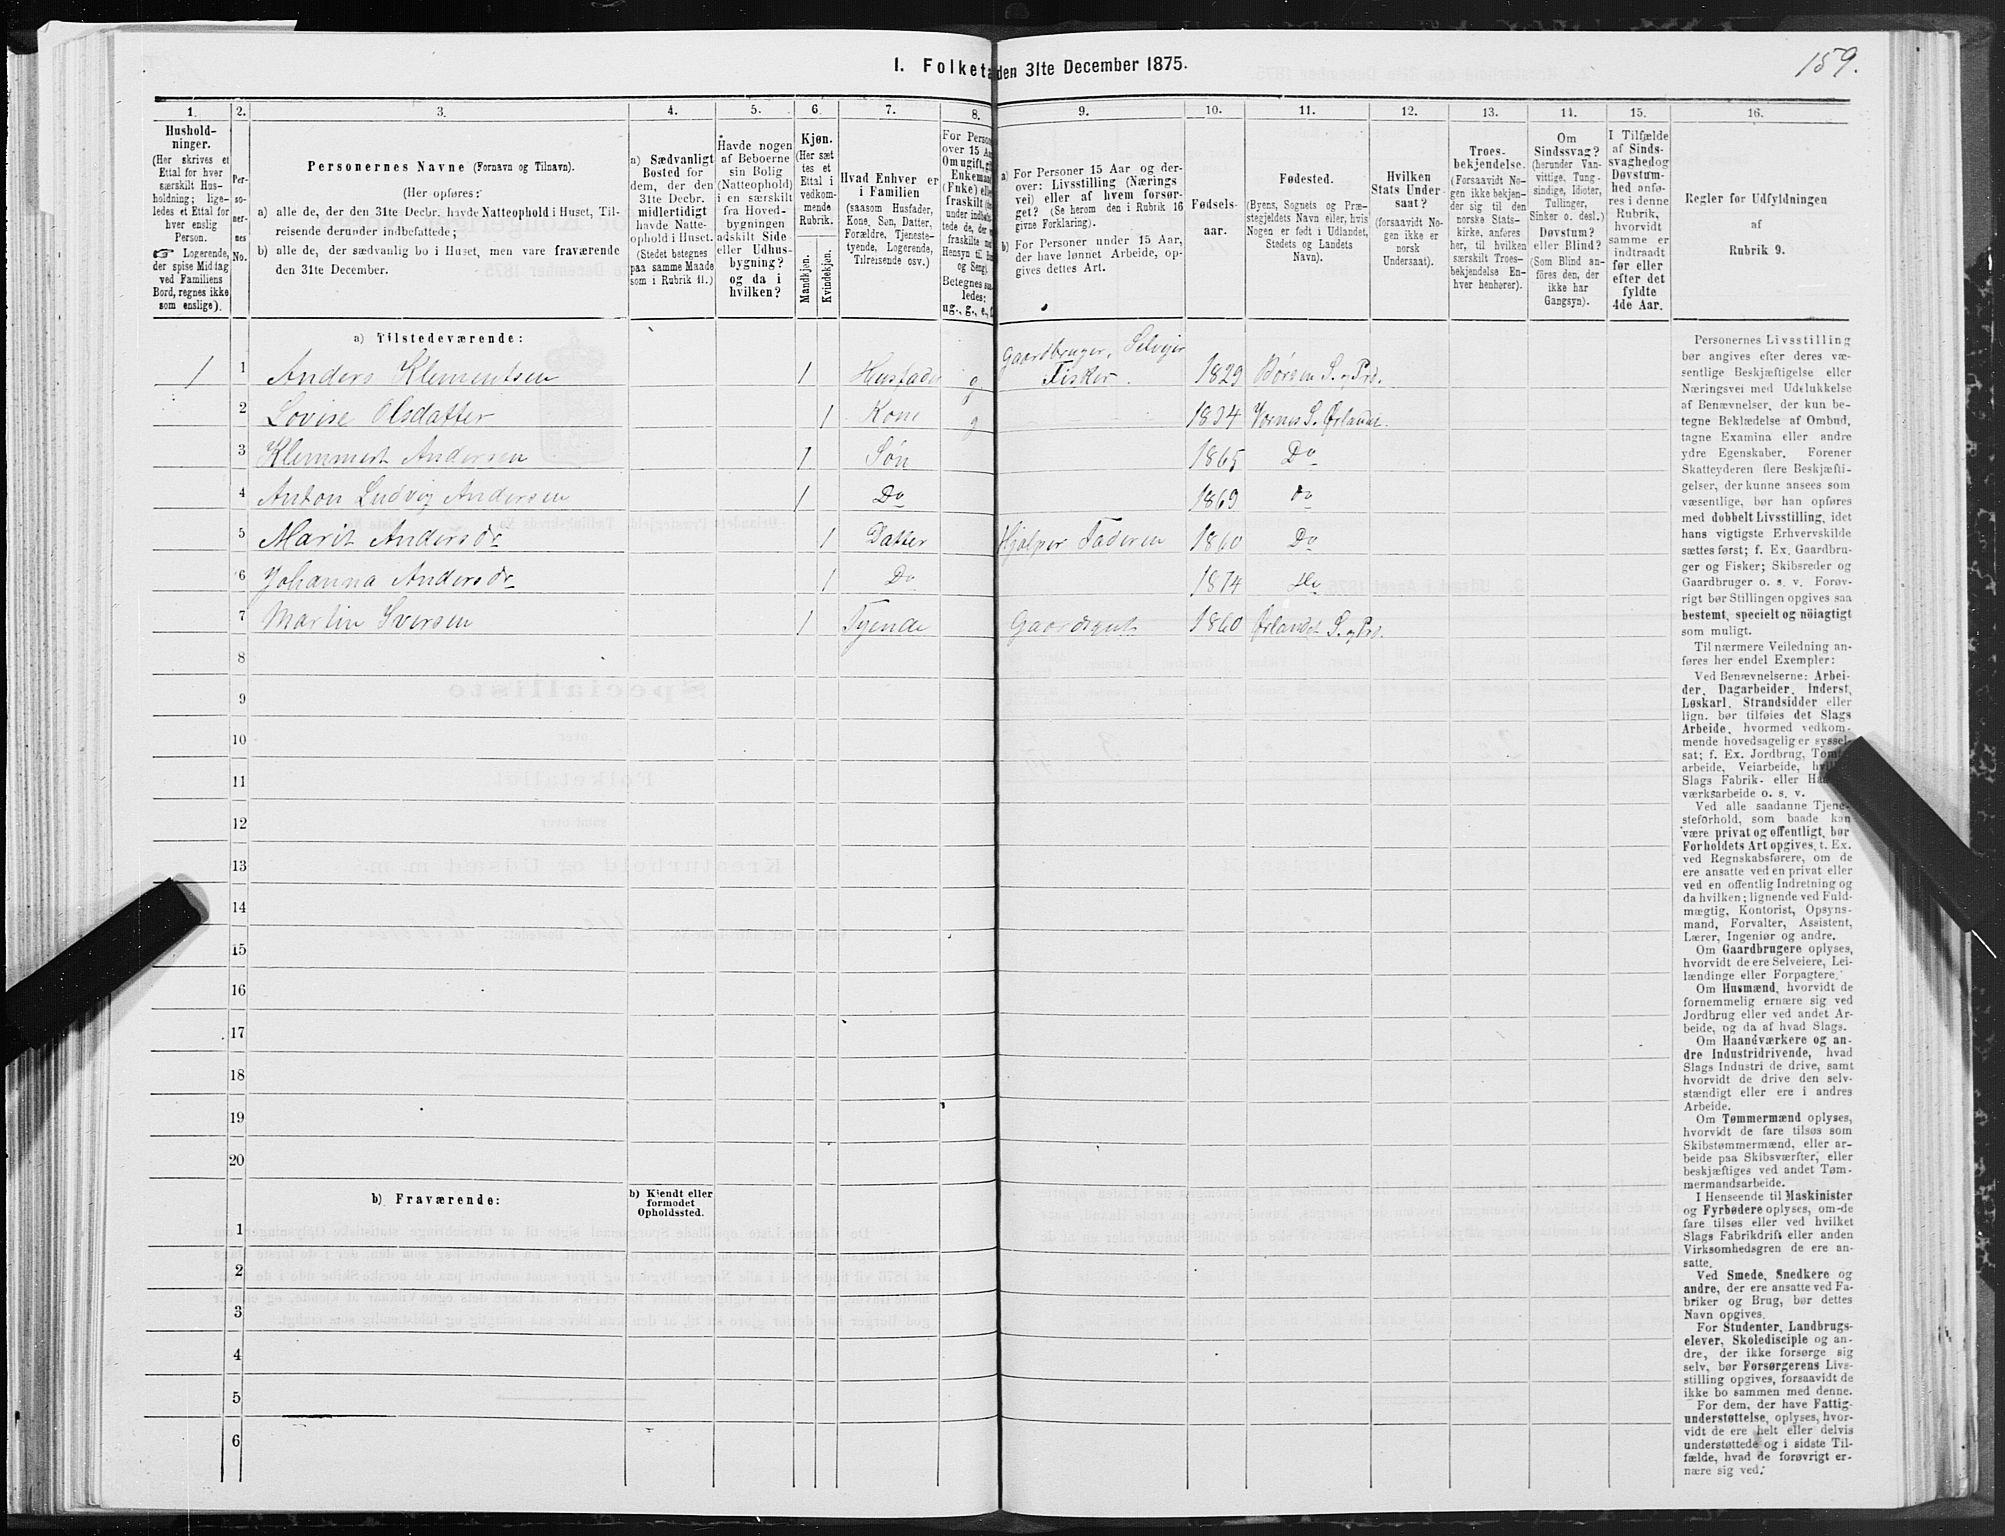 159.
I. Folketa den 31te December 1875.
1. 2. 3. 4. 5. 6. 7. 8. 9. 10. 11. 12. 13. 14. 15. 16.
Hushold-
ninger.
(Her skrives et
Ettal for hver
særskilt Hus-
holdning; lige-
ledes et Ettal for
hver enslig
Person.
☞ Logerende,
der spise Middag
ved Familiens
Bord, regnes ikke
som enslige).
Per-
so-
ner-
nes
No.
Personernes Navne (Fornavn og Tilnavn).
(Her opføres:
a) alle de, der den 31te Decbr. havde Natteophold i Huset, Til-
reisende derunder indbefattede;
b) alle de, der sædvanlig bo i Huset, men vare fraværende
den 31te December.
a) Sædvanligt
Bosted for
dem, der den
31te Decbr.
midlertidigt
havde Natte-
ophold i Huset.
(Stedet betegnes
paa samme Maade
som i Rubrik 11.)
Havde nogen
af Beboerne
sin Bolig
(Natteophold)
i en særskilt
fra Hoved-
bygningen
adskilt Side
eller Udhus-
bygning?
og da i
hvilken?
Kjøn.
(Her sæt
tes et
Ettal i
vedkom-
mende
Rubrik.
Mandkjøn.
Kvindekjøn.
Hvad Enhver er
i Familien
(saasom Husfader,
Kone, Søn, Datter,
Forældre, Tjeneste-
tyende, Logerende,
Tilreisende osv.)
For Person
over 15 Aa
Om ugift, gi
Enkemand
(Enke) elle
fraskilt
Hensyn til
og Seng).
ledes;
ug., g., e.,
a) For Personer 15 Aar og der-
over: Livsstilling (Nærings
vei) eller af hvem forsør-
get? (Se herom den i Rubrik 16
givne Forklaring).
b) For Personer under 15 Aar,
der have lønnet Arbeide, op-
gives dettes Art.
Fødsels-
aar.
Fødested.
(Byens, Sognets og Præ-
stegjeldets Navn eller, hvis
Nogen er født i Udlandet,
Stedets og Landets
Navn).
Hvilken
Stats Under-
saat?
(forsaavidt No-
gen ikke er
norsk
Undersaat).
Troes-
bekjendelse.
(Forsaavidt No-
gen ikke bekjen-
der sig til den
norske Stats-
kirke, anføres
her, til hvilken
særskilt Troes-
bekjendelse En-
hver henhører).
Om
Sindssvag?
(herunder Van-
vittige, Tung-
sindige, Idioter,
Tullinger,
Sinker o. desl.)
Døvstum?
eller Blind?
(Som Blind an-
føres den, der
ikke har
Gangsyn).
I Tilfælde
af Sinds-
svaghed og
Døvstum-
hed anfø-
res i denne
Rubrik,
hvorvidt
samme er
indtraadt
før eller
efter det
fyldte
4de Aar.
Regler for Udfyldningen
af
Rubrik 9.
a) Tilstedeværende:
1 1 Anders Klementsen 1 Husfader g Gaardbruger, Selveier Fisker. 1829 Børsen S. og Prd.
2 Lovise Olsdatter 1 Kone g 1834 Vornes S. Ørlandet.
3 Klemmert Andersen 1 Søn 1865 Do
4 Anton Ludvig Andersen 1 Do 1869 Do
5 Marit Andersdr 1 Datter Hjelper Faderen 1860 Do
6 Johanna Andersdr 1 Do 1874 Do
7 Martin Iversen 1 Tyende Gaardsgut 1860 Ørlandet S. og Prd.
8
9
10
11
12
13
14
15
16
17
18
19
20
b) Fraværende:
b) Kjendt eller
formodet
Opholdssted.
1
2
3
4
5
6
Personernes Livsstilling
bør angives efter deres væ-
sentlige Beskjæftigelse eller
Næringsvei med Udelukkelse
af Benævnelser, der kun be-
tegne Beklædelse af Ombud,
tagne Examina eller andre
ydre Egenskaber. Forener
Skatteyderen flere Beskjæfti-
gelser, der kunne ansees som
væsentlige, bør han opføres
med dobbelt Livsstilling, idet
hans vigtigste Erhvervskilde
sættes først; f. Ex. Gaardbru-
ger og Fisker; Skibsreder og
Gaardbruger o. s. v. Forøv-
rigt bør Stillingen opgives saa
bestemt, specielt og nöiagtigt
som muligt.
Til nærmere Veiledning an-
føres her endel Exempler:
Ved Benævnelserne: Arbei-
der, Dagarbeider, Inderst,
Løskarl, Strandsidder eller
lign. bør tilføies det Slags
Arbeide, hvormed vedkom-
mende hovedsagelig er syssel-
sat; f. Ex. Jordbrug, Tømte-
arbeide, Veiarbeide,
Slags Fabrik- eller
værksarbeide o. s. v.
Ved alle saadanne Tjene-
steforhold, som baade kan
være privat og offentligt, bør
Forholdets Art opgives, t. Ex.
ved Regnskabsførere, om de
ere ansatte ved en privat eller
ved en offentlig Indretning og
da hvilken; lignende ved Fuld-
mægtig, Kontorist, Opsyns-
mand, Forvalter, Assistent,
Lærer, Ingeniør og andre.
Om Gaardbrugere oplyses,
hvorvidt de ere Selveiere, Lei-
lændinge eller Forpagtere.
Om Husmænd, hvorvidt de
fornemmelig ernære sig ved
Jordbrug eller ved andet Ar-
beide, og da af hvad Slags.
Om Haandværkere og an-
dre Industridrivende, hvad
Slags Industri de drive, samt
hvorvidt de drive den selv-
stændigt eller ere i andres
Arbeide.
Om Tømmermænd oplyses,
hvorvidt de fare tilsøs som
Skibstømmermænd, eller ar-
beide paa Skibsværfter, eller
beskjæftiges ved andet Tøm-
mermandsarbeide.
I Henseende til Maskinister
og Fyrbødere oplyses, om de
fare tilsøs eller ved hvilket
Slags Fabrikdrift eller anden
Virksomhedsgren de ere an-
satte.
Ved Smede, Snedkere og
andre, der ere ansatte ved Fa-
briker og Brug, bør dettes
Navn opgives.
For Studenter, Landbrugs-
elever, Skoledisciple og an-
dre, der ikke forsørge sig
selv, bør Forsørgerens Livs-
stilling opgives, forsaavidt de
ikke bo sammen med denne.
For dem, der have Fattig-
understøttelse, oplyses, hvor-
vidt de ere helt eller delvis
understøttede og i sidste Til-
fælde, hvad de forøvrigt er-
nære sig ved.